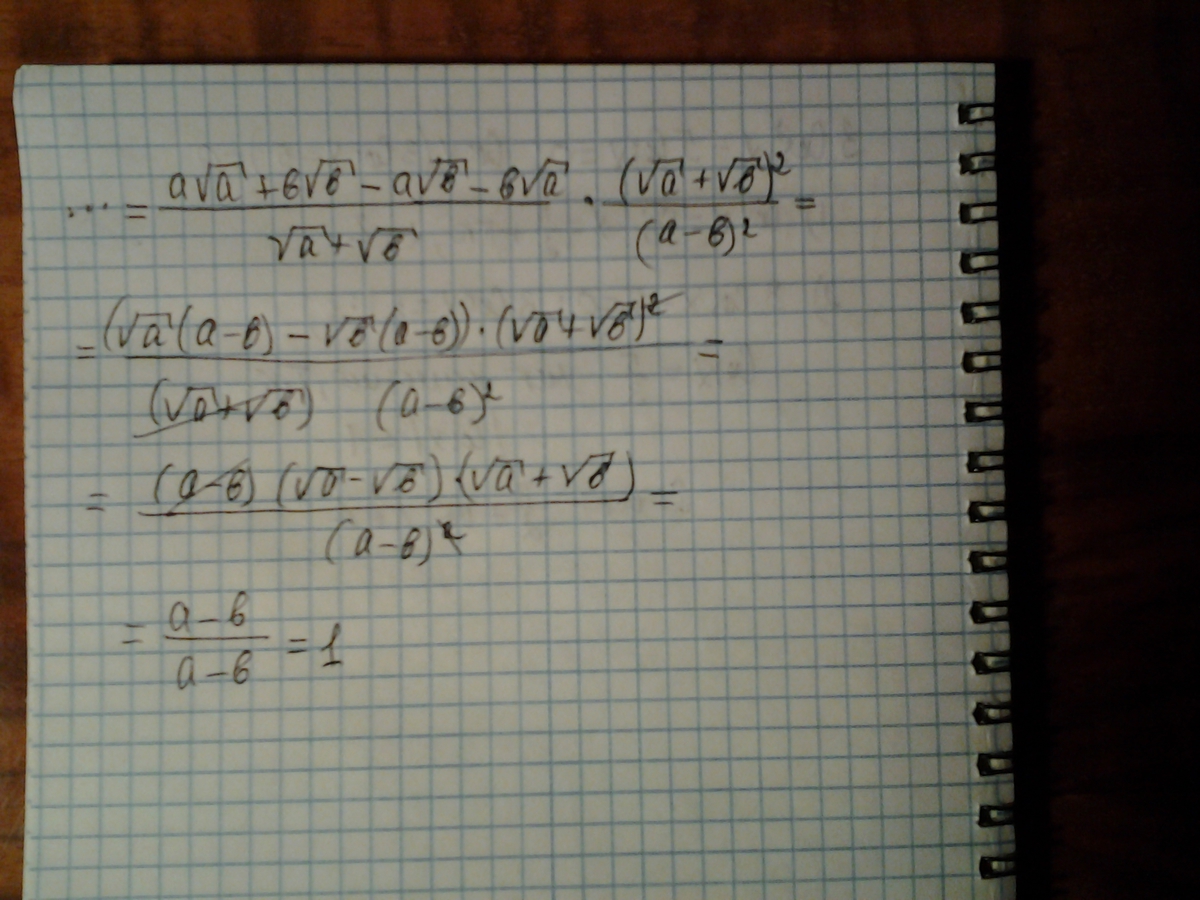 ... = (a√a + в√в − a√в − в√a)/(√a + √в) · (√a + √в)²/(a − в)² =
= ((√a(a − в) − √в(a − в)) · (√a + √в)²)/((√a + √в) (a − в)²) =
= ((a − в)(√a − √в)·(√a + √в))/((a − в)²) =
= (a − в)/(a − в) = 1